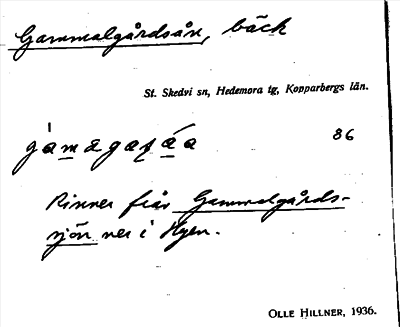 Gammalgårdsån, bäck
St. Skedvi sn, Hedemora tg, Kopparbergs län.
86
Rinner från Gammalgårds-
sjön ner i Hyen.
OLLE HILLNER, 1936.